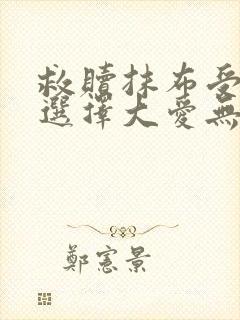 救贖抹布受
選擇大愛無
鄭憲景